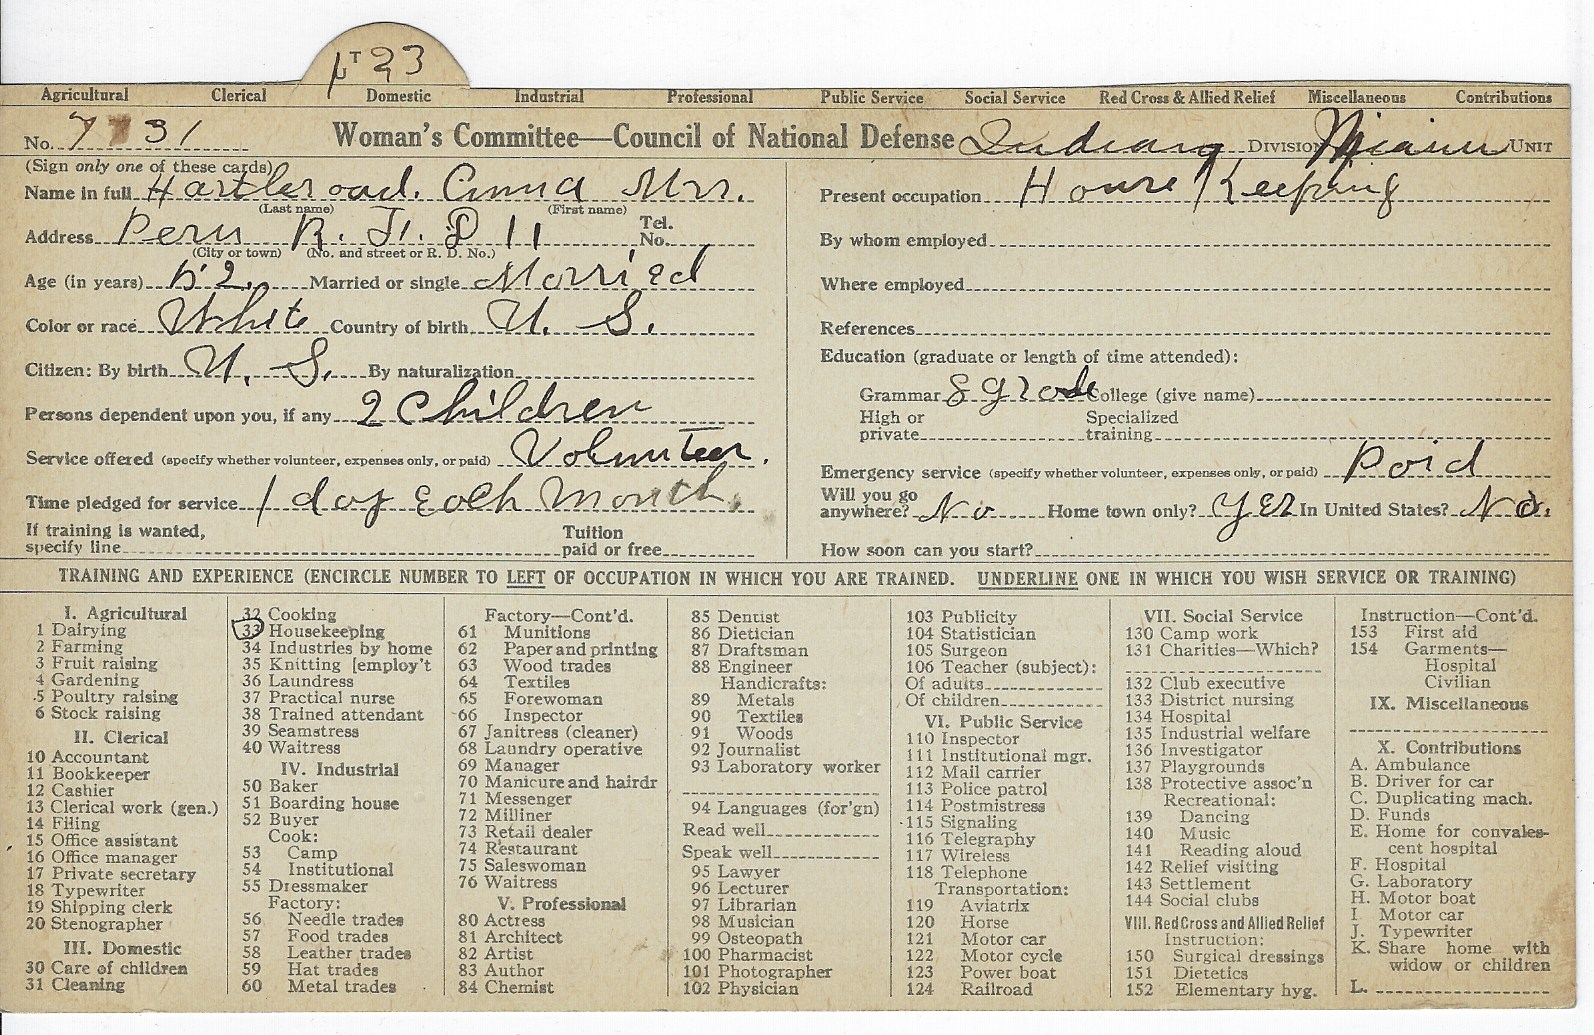 T 33
U
Agricultural Clerical Domestic Industrial Professional Public Service Social Service Red Cross & Allied Relief Miscellaneous Contributions
No. 7 31 Woman's Committee—Council of National Defense Indiana DIVISION Miami UNIT
(Sign only one of these cards)
Name in full Hartleroad. Anna Mrs.
(Last name) (First name)
Address Peru R. F. D 11 Tel. No.
(City or town) (No. and street or R. D. No.)
Age (in years) 52 Married or single Married
Color or race White Country of birth U. S.
Citizen: By birth U. S. By naturalization
Persons dependent upon you, if any 2 Children
Service offered (specify whether volunteer, expenses only, or paid) Volunteer.
Time pledged for service 1 day Each Month.
If training is wanted, specify line Tuition paid or free
Present occupation House Keeping
By whom employed
Where employed
References
Education (graduate or length of time attended):
Grammar 8 grade College (give name)
High or private Specialized training
Emergency service (specify whether volunteer, expenses only, or paid) Paid
Will you go anywhere? No Home town only? Yes In United States? No.
How soon can you start?
TRAINING AND EXPERIENCE (ENCIRCLE NUMBER TO LEFT OF OCCUPATION IN WHICH YOU ARE TRAINED. UNDERLINE ONE IN WHICH YOU WISH SERVICE OR TRAINING)
I. Agricultural
1 Dairying
2 Farming
3 Fruit raising
4 Gardening
5 Poultry raising
6 Stock raising
II. Clerical
10 Accountant
11 Bookkeeper
12 Cashier
13 Clerical work (gen.)
14 Filing
15 Office assistant
16 Office manager
17 Private secretary
18 Typewriter
19 Shipping clerk
20 Stenographer
III. Domestic
30 Care of children
31 Cleaning
32 Cooking
33 Housekeeping
34 Industries by home
35 Knitting [employ't
36 Laundress
37 Practical nurse
38 Trained attendant
39 Seamstress
40 Waitress
IV. Industrial
50 Baker
51 Boarding house
52 Buyer
Cook:
53 Camp
54 Institutional
55 Dressmaker
Factory:
56 Needle trades
57 Food trades
58 Leather trades
59 Hat trades
60 Metal trades
Factory—Cont'd.
61 Munitions
62 Paper and printing
63 Wood trades
64 Textiles
65 Forewoman
66 Inspector
67 Janitress (cleaner)
68 Laundry operative
69 Manager
70 Manicure and hairdr
71 Messenger
72 Milliner
73 Retail dealer
74 Restaurant
75 Saleswoman
76 Waitress
V. Professional
80 Actress
81 Architect
82 Artist
83 Author
84 Chemist
85 Dentist
86 Dietician
87 Draftsman
88 Engineer
Handicrafts:
89 Metals
90 Textiles
91 Woods
92 Journalist
93 Laboratory worker
94 Languages (for'gn)
Read well
Speak well
95 Lawyer
96 Lecturer
97 Librarian
98 Musician
99 Osteopath
100 Pharmacist
101 Photographer
102 Physician
103 Publicity
104 Statistician
105 Surgeon
106 Teacher (subject):
Of adults
Of children
VI. Public Service
110 Inspector
111 Institutional mgr.
112 Mail carrier
113 Police patrol
114 Postmistress
115 Signaling
116 Telegraphy
117 Wireless
118 Telephone
Transportation:
119 Aviatrix
120 Horse
121 Motor car
122 Motor cycle
123 Power boat
124 Railroad
VII. Social Service
130 Camp work
131 Charities—Which?
132 Club executive
133 District nursing
134 Hospital
135 Industrial welfare
136 Investigator
137 Playgrounds
138 Protective assoc'n
Recreational:
139 Dancing
140 Music
141 Reading aloud
142 Relief visiting
143 Settlement
144 Social clubs
VIII. Red Cross and Allied Relief
Instruction:
150 Surgical dressings
151 Dietetics
152 Elementary hyg.
Instruction—Cont'd.
153 First aid
154 Garments—
Hospital
Civilian
IX. Miscellaneous
X. Contributions
A. Ambulance
B. Driver for car
C. Duplicating mach.
D. Funds
E. Home for convales-
cent hospital
F. Hospital
G. Laboratory
H. Motor boat
I. Motor car
J. Typewriter
K. Share home with
widow or children
L.